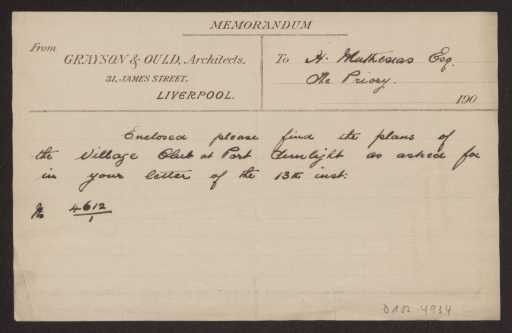 MEMORANDUM
From
GRAYSON & OULD, Architects.
31, JAMES STREET,
LIVERPOOL.
To H. Muthesius Esq.
The Priory.
190
Enclosed please find the plans of
the Village Club at Port Sunlight as asked for
in your letter of the 13th inst.
No 4612/1
4934